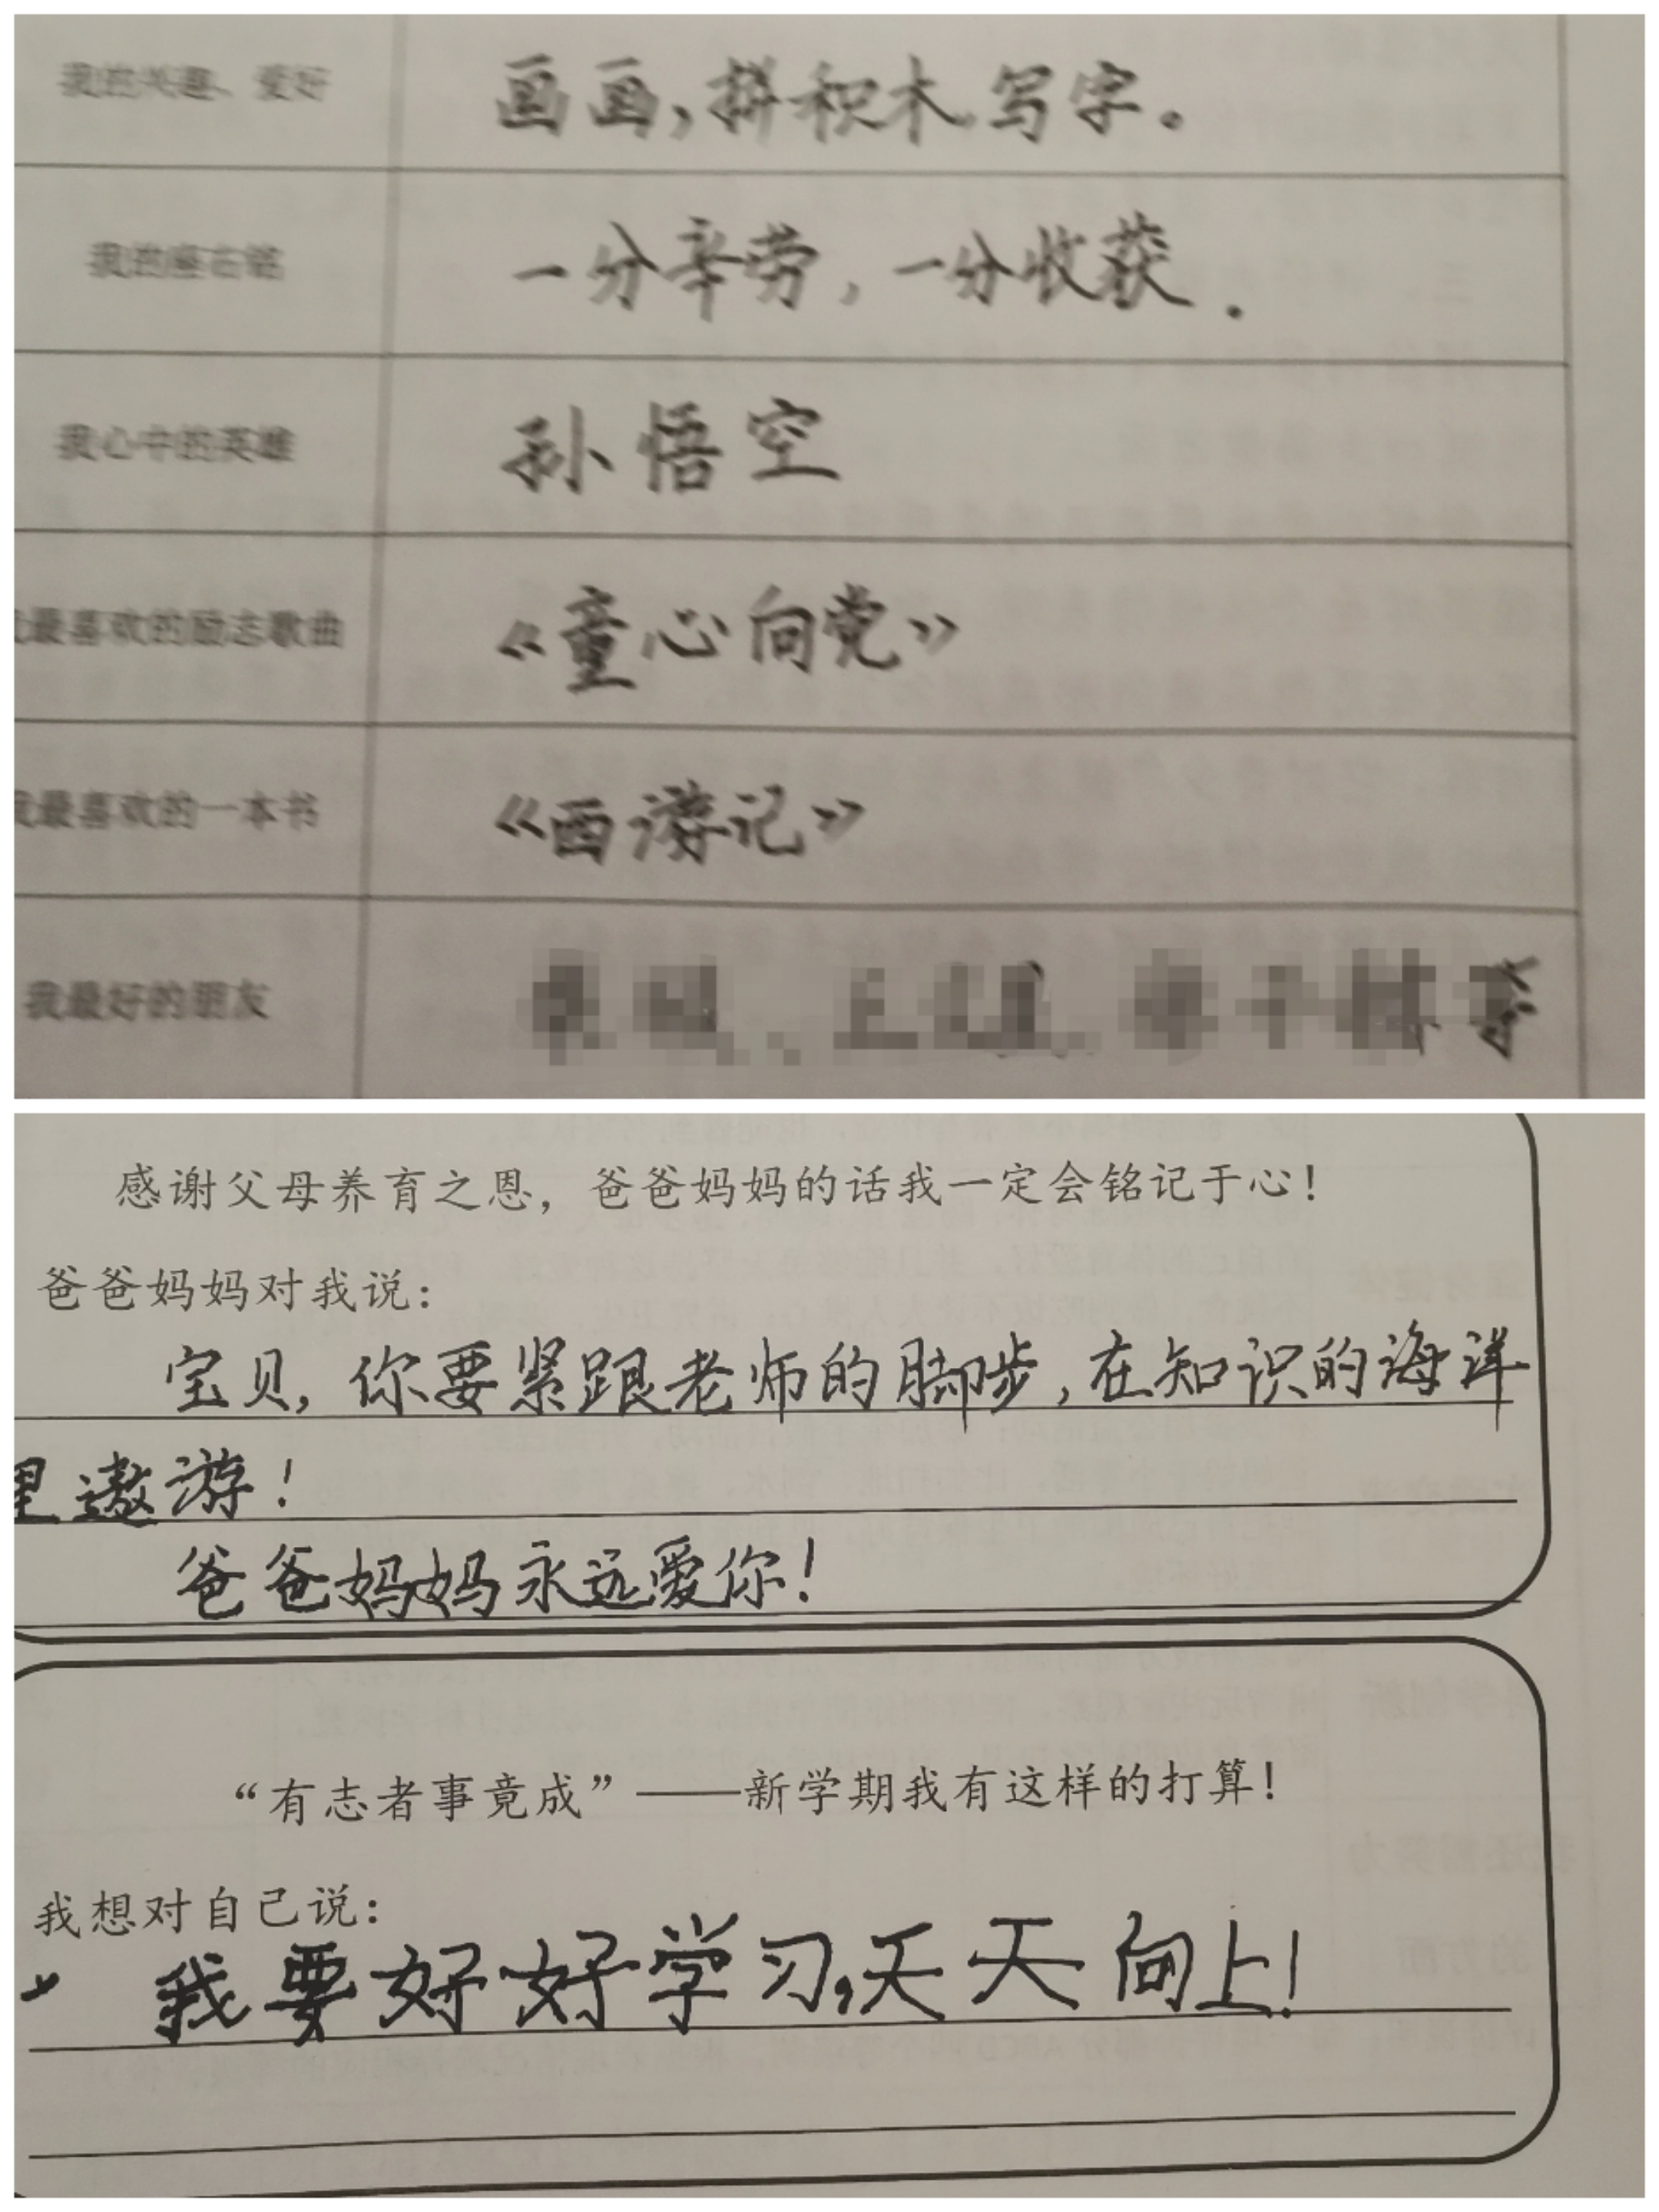 我的兴趣、爱好 画画,拼积木.写字。
我的座右铭 一分辛劳,一分收获.
我心中的英雄 孙悟空
最喜欢的励志歌曲 《童心向党》
我最喜欢的一本书 《西游记》
我最好的朋友
感谢父母养育之恩，爸爸妈妈的话我一定会铭记于心！
爸爸妈妈对我说：
宝贝,你要紧跟老师的脚步,在知识的海洋
里遨游!
爸爸妈妈永远爱你!
“有志者事竟成”——新学期我有这样的打算！
我想对自己说：
我要好好学习,天天向上!